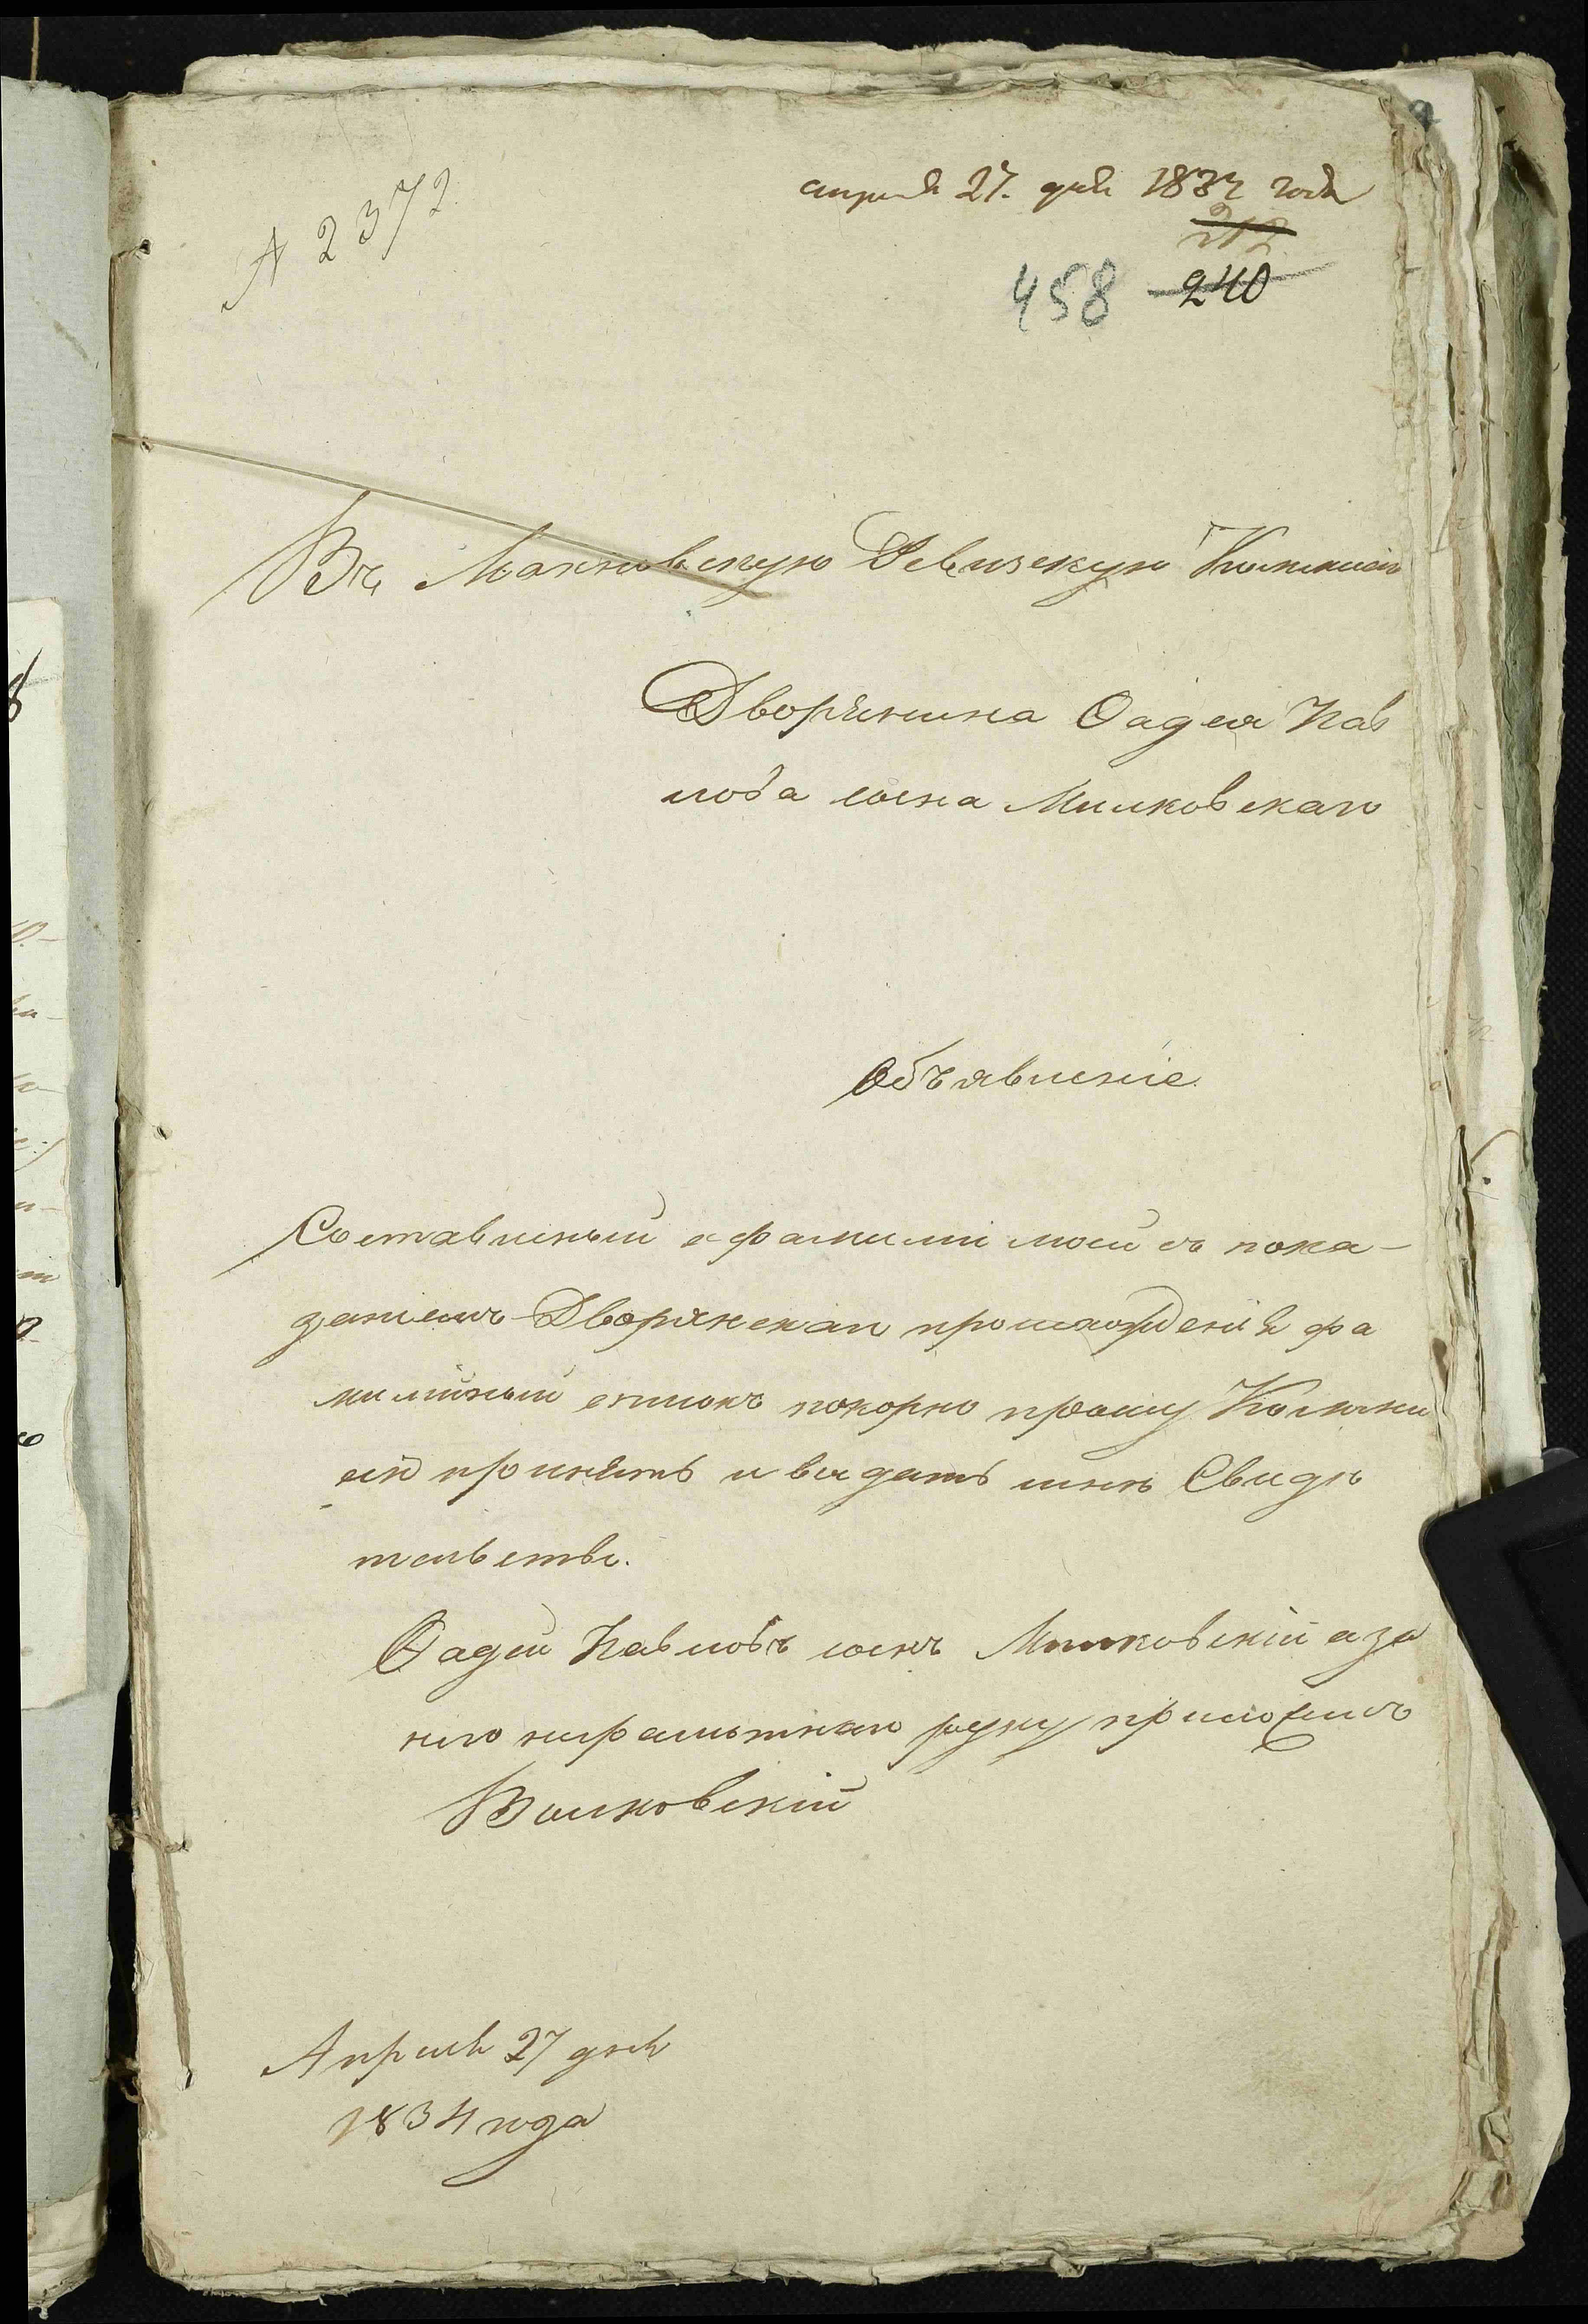 № 2372.
апреля 27. дня 1834 года
212
458 240
Въ Махновскую Ревизскую Комисію
Дворянина Ѳадея Пав
лова сына Милковскаго
Объявленіе.
Составленный о фамиліи моей съ пока-
заніемъ Дворянскаго происхожденія фа
милійный списокъ покорно прошу Комми
сію принять и выдать мнѣ Свидѣ
тельство.
Ѳадей Павловъ сынъ Милковскій а за
него неграмотнаго руку приложилъ
Волковскій
Апреля 27 дня
1834 года